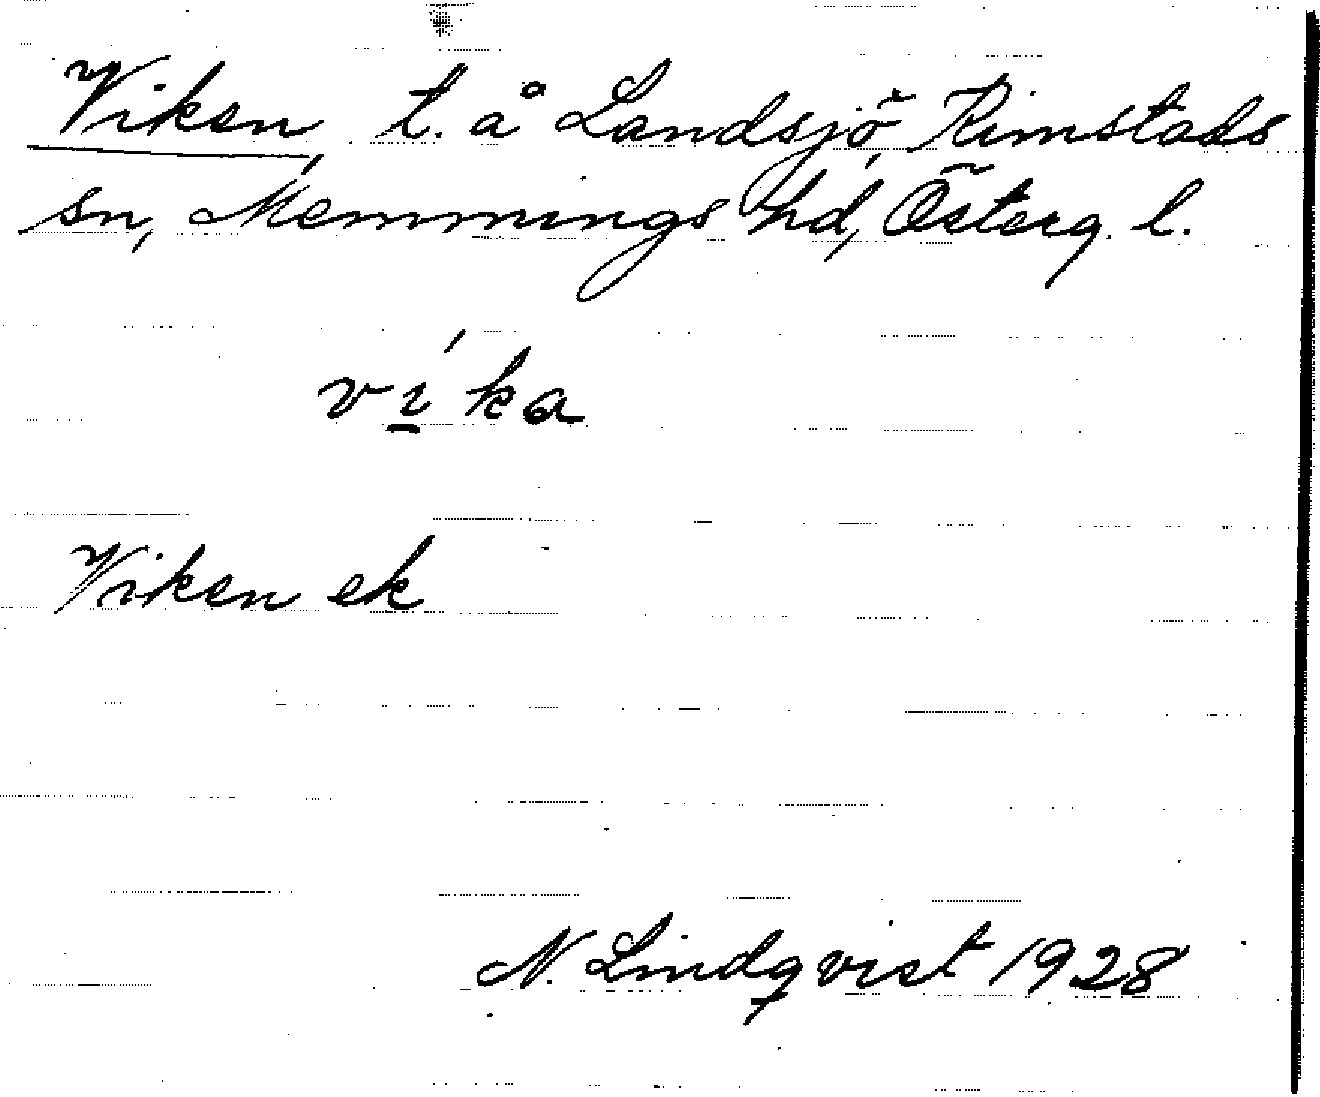 Viken, t. å Landsjö, Kimstads
sn, Memmings hd, Österg. l.
ví̱ka
Viken ek
N. Lindqvist 1928